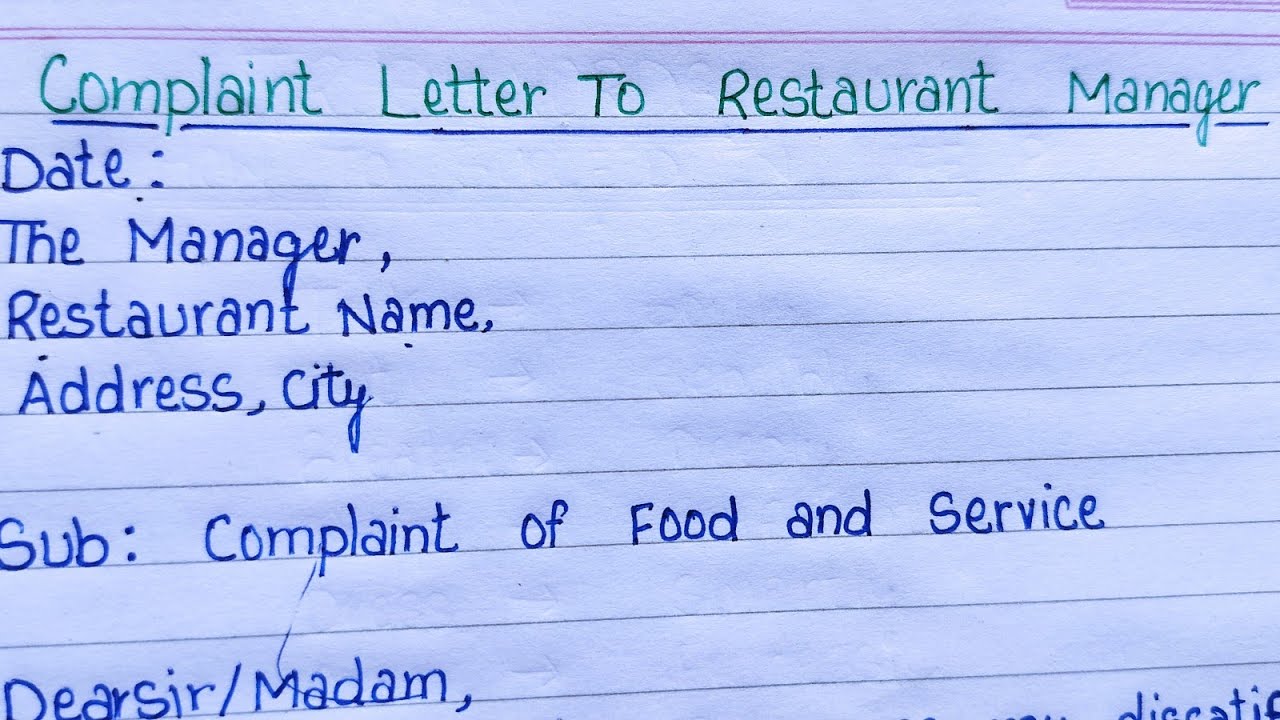 Complaint Letter To Restaurant Manager
Date:
The Manager,
Restaurant Name,
Address, City
Sub: Complaint of Food and Service
Dearsir/Madam,